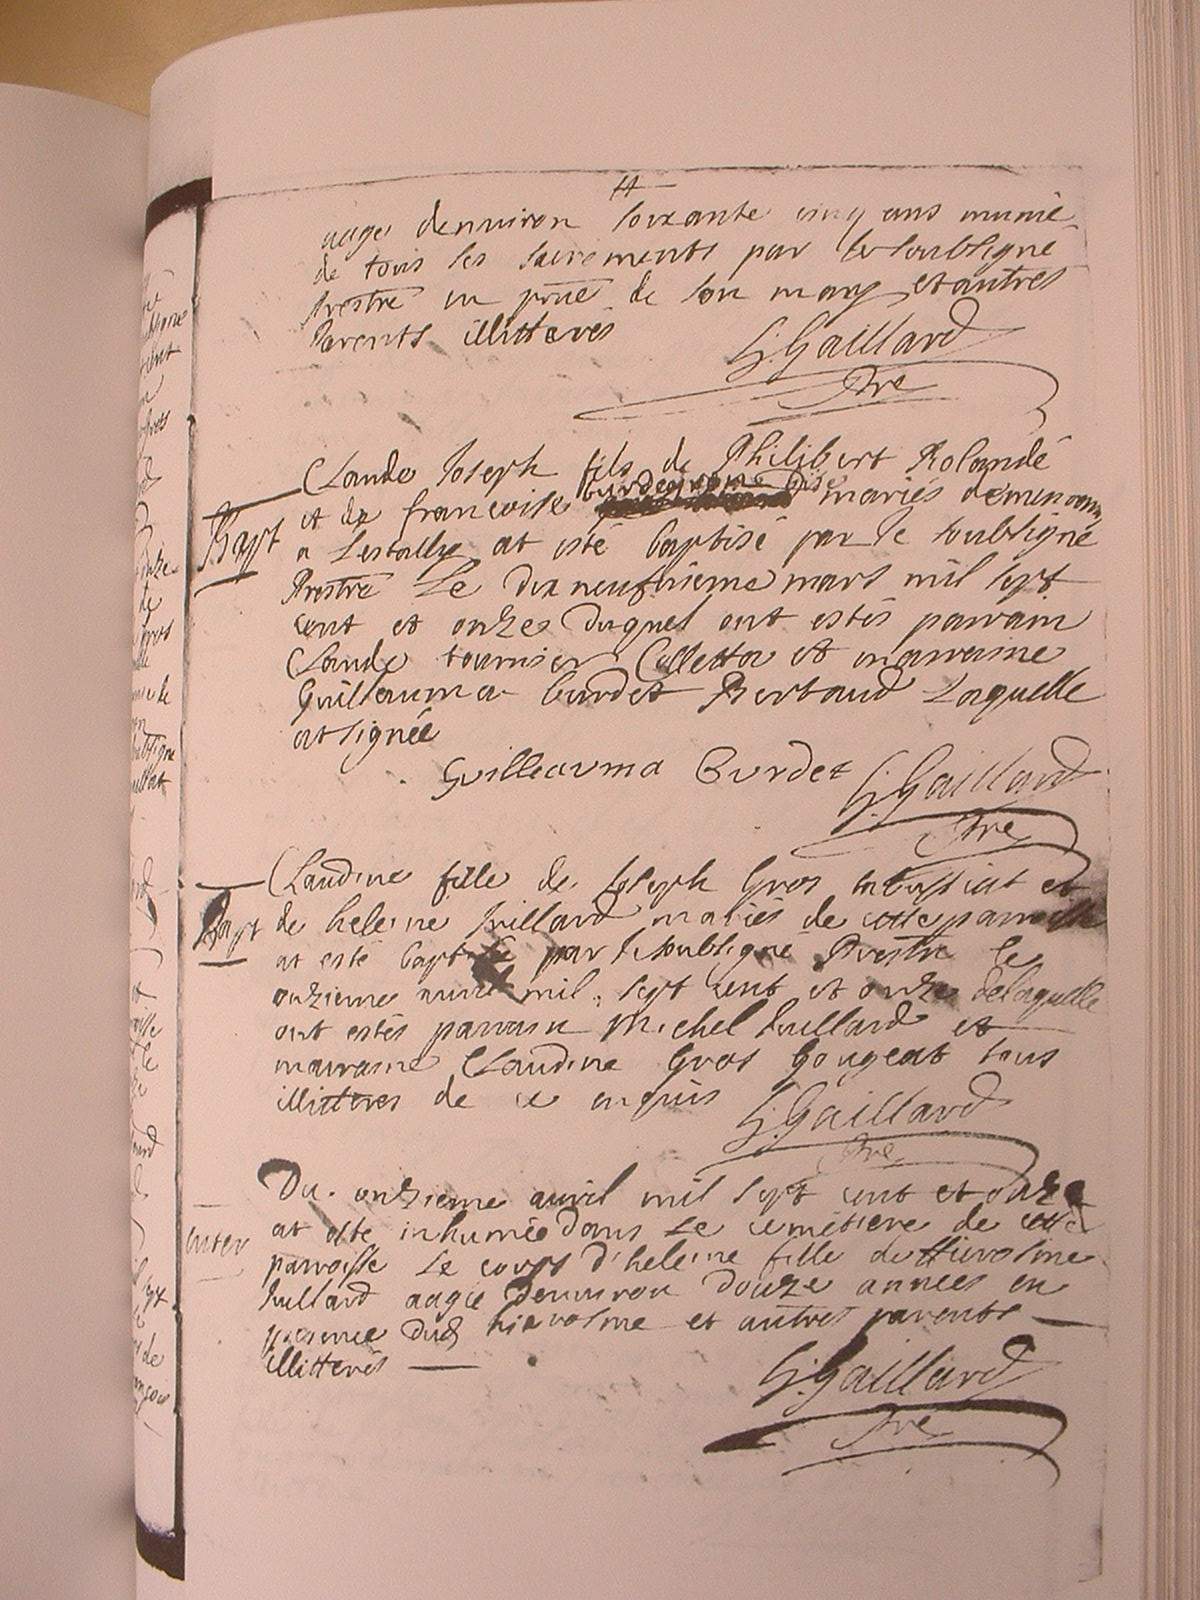 aagé denuiron soixante cinq ans munie
de tous les sacrements par le soubsigné
Prestre en pñce de son mary et autres
Parents illitterés
G. Gaillard
Pre
Claude Joseph fils de Philibert Rolandé
et de françoise mariés
Bapt
a Lestally at esté baptisé par le soubsigné
Prestre Le dix neufuieme mars mil sept
cent et onze duquel ont estés parrain
Claude tournier Colletta et marraine
Guilleauma burdet Bertaud Laquelle
at signée
Guilleauma Burdet G. Gaillard
Pre
Claudine fille de Joseph Gros et
Bapt de heleine Juillard mariés de cette parroisse
at esté baptisé par le soubsigné Prestre le
onzieme mil sept cent et onze de laquelle
ont estés parrain Michel Juillard et
marraine Claudine Gros Gougeat tous
illitteres de ce enquis G. Gaillard
Pre
Du onzieme auril mil sept cent et onze
at esté inhumée dans Le cemetiere de cette
enter
parroisse Le corps d'heleine fille de hierosme
Juillard aagée denuiron douze années en
presence dud hierosme et autres parents
illitterés
G. Gaillard
Pre